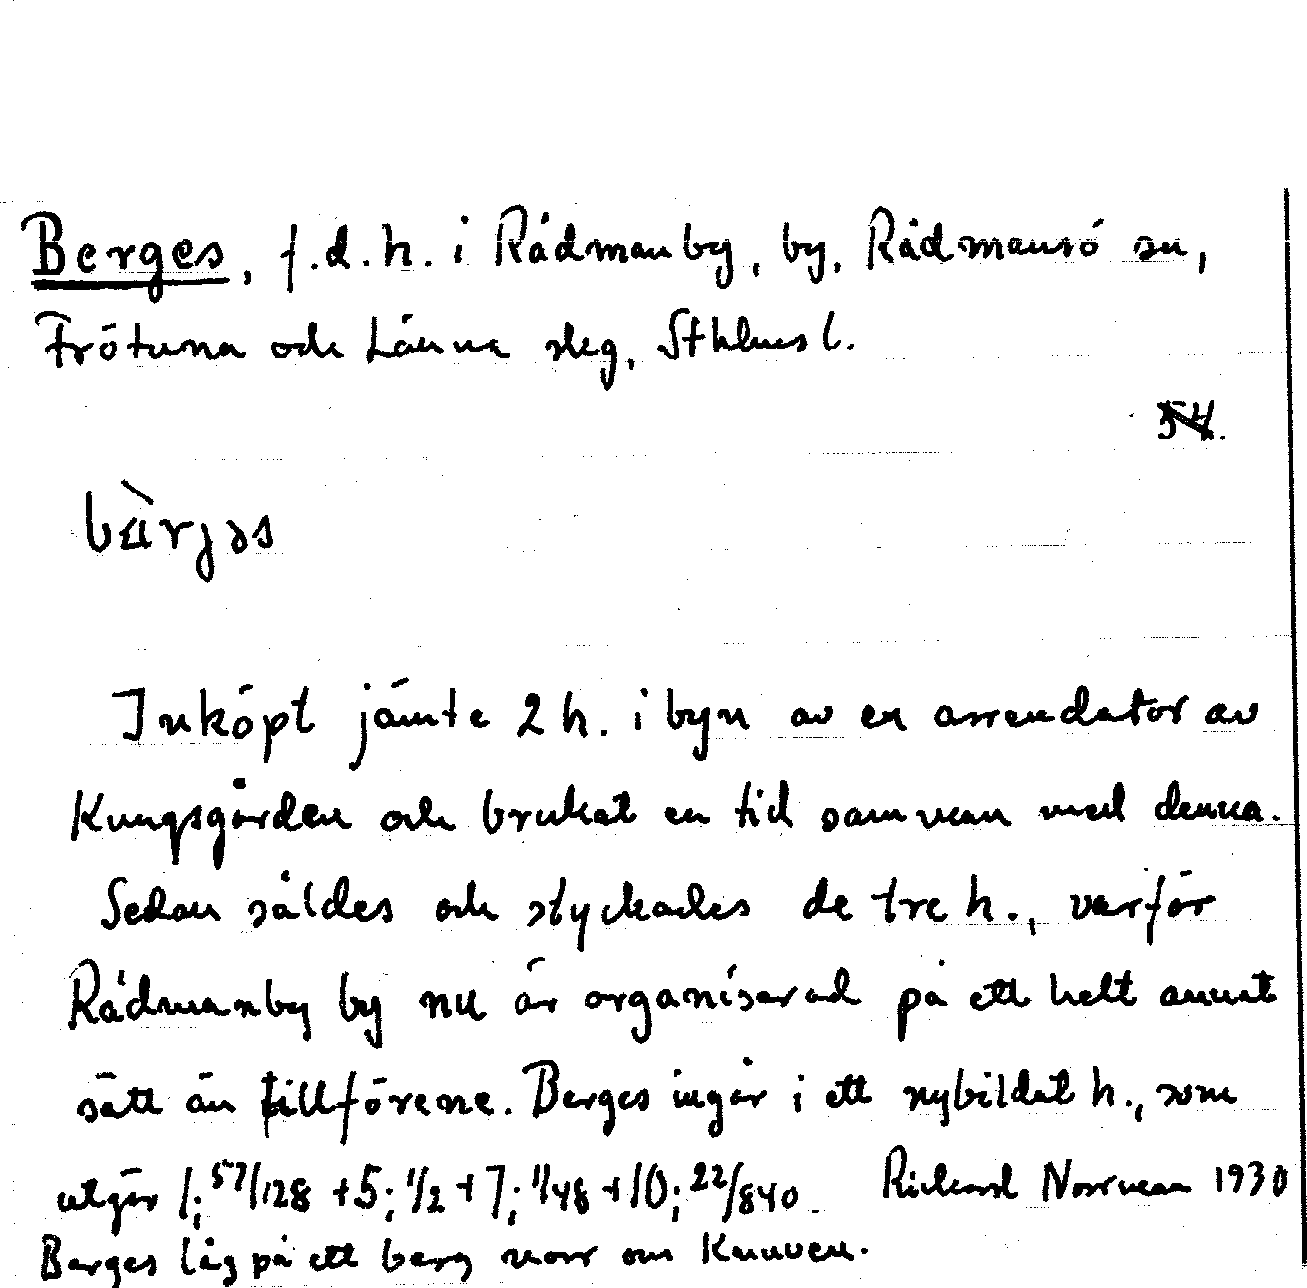 Berges, f.d.h. i Rådmanby, by, Rådmansö sn,
Frötuna och Länna slg, Sthlms l.
54.
bàrjəs
Inköpt jämte 2 h. i byn av en arrendator av
Kungsgården och brukat en tid samman med denna.
Sedan såldes och styckades de tre h., varför
Rådmanby by nu är organiserad på ett helt annat
sätt än tillförene. Berges ingår i ett nybildat h., som
utgör 1; 57/128 + 5; 1/2 + 7; 1/48 + 10; 22/840 Rickard Norrman 1930
Berges låg på ett berg norr om Knuven.